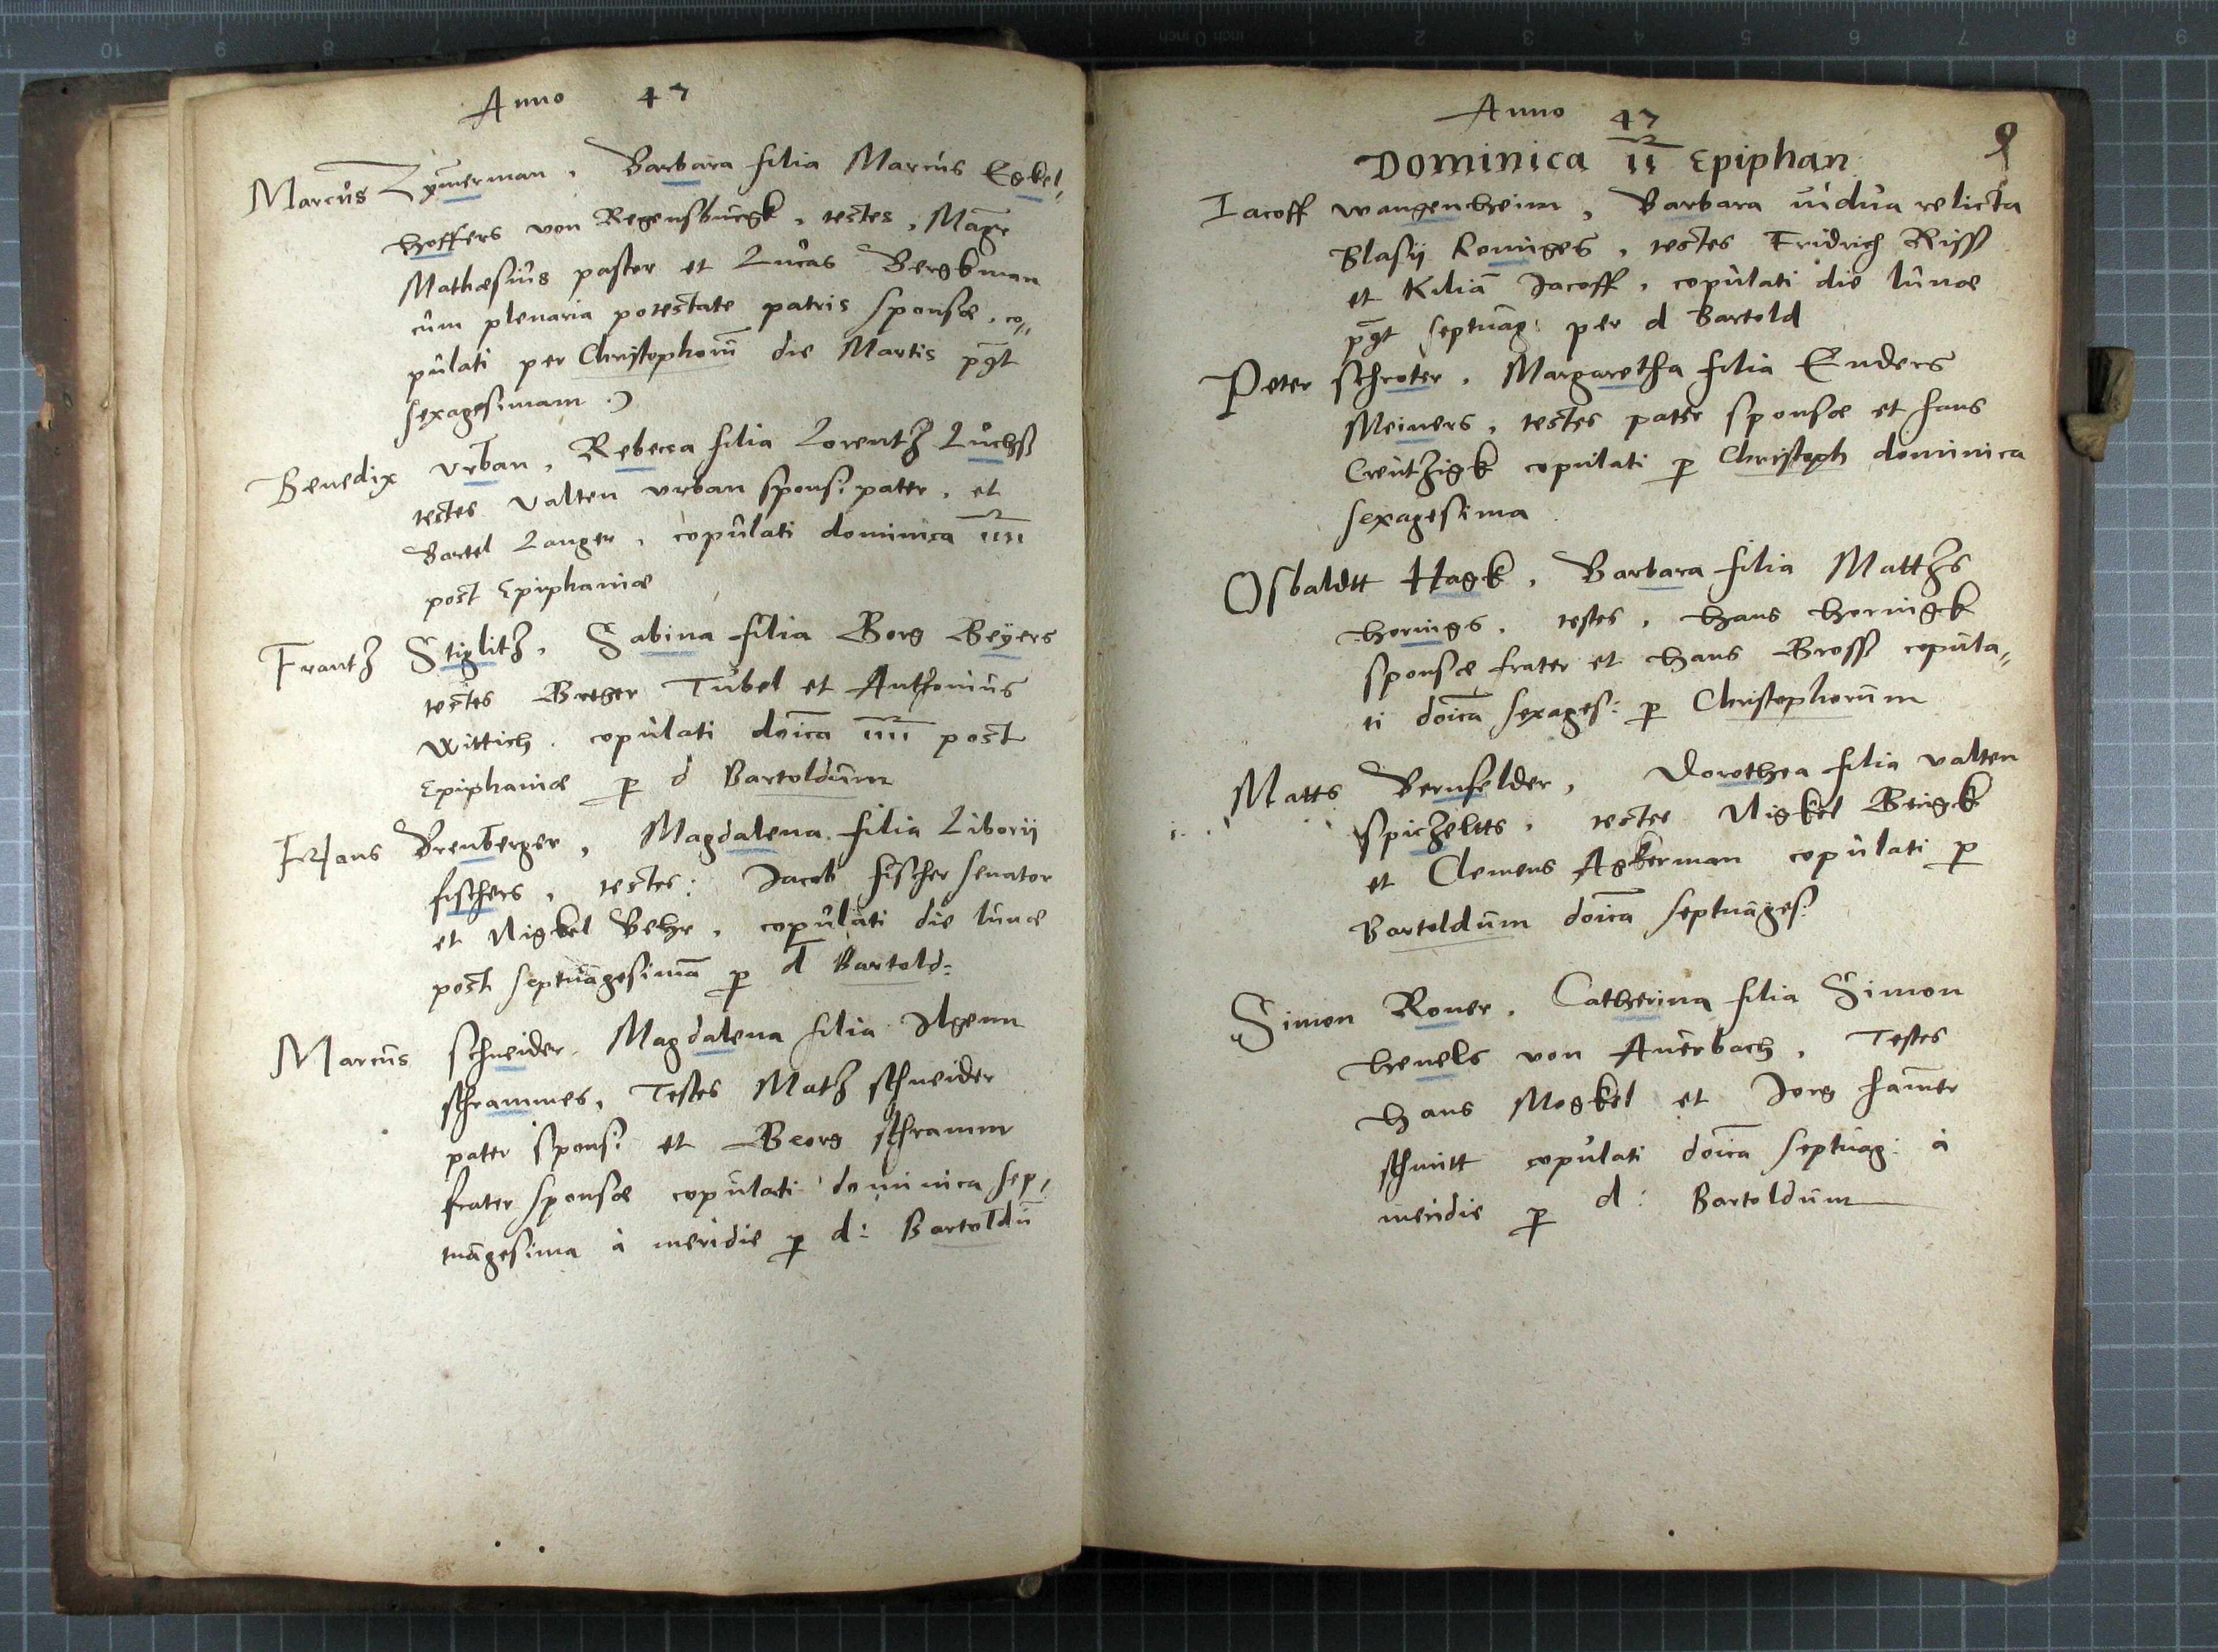 Anno 47
Marcus Zymerman, Barbara filia Marcus Egkel-
hoffers von Regensburgk, testes, Magr
Mathesius pastor et Lucas Bergkman
cum plenaria potestate patris sponsæ, co-
pulati per Christophorū die Martis pgt
sexagesimam
Benedix Urban, Rebecca filia Lorentz Luchss
testes Valten urban sponsi pater, et
Bartel Langer, copulati dominica iiii
post Epiphaniæ
Frantz Stiglitz, Sabina filia Borg Beÿers
testes Breger Tubel et Anthonius
Wittich. copulati doica iiii post
Epiphaniæ p d Bartoldum
Hans Brenberger, Magdalena filia Liborii
fischers, testes: Jacob fischer senator
et Nigkel Behr, copulati die lunæ
post septuagesimā p d Bartold:
Marcus schneider, Magdalena filia Ilgenn
schrammes, Testes Matz schneider
pater sponsi et Georg schramm
frater sponsæ copulati dominica sep,
tuagesima à meridie p d: Bartoldū
Anno 47
9
Dominica ii Epiphan
Iacoff wangenheim, Barbara vidua relicta
Blasii Koniges, testes Fridrich Riss
et Kiliā Jacoff, copulati die lunæ
pgt septuag: per d Bartold
Peter schroter, Margaretha filia Enders
Meiners, testes pater sponsæ et hans
Creutzigk copulati p Christoph dominica
sexagesima
Osbaldtt Hagk, Barbara filia Mattzs
hornigs, testes, hans hornigk
sponsæ frater et hans Gross copula-
ti doica sexages: p Christophorum
Matts Bernfelder, Dorothea filia valten
spiczeltts, testes Nigkel Brigk
et Clemens Agkerman copulati p
Bartoldum doica septuages:
Simon Roner, Catherina filia Simon
henels von Auerbach, Testes
hans Mogkel et Jorg hamer
schmitt copulati doica septuag: à
meridie p d: Bartoldum